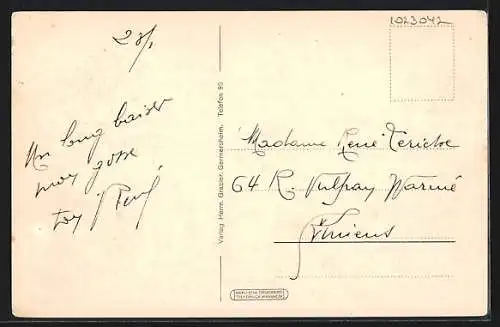 1023042
23/1
Un long baiser
mon gosse
ton René
Madame René
64 R. Vulfran Warmé
Amiens
Verlag Herm. Glasser, Germersheim. Telefon 95